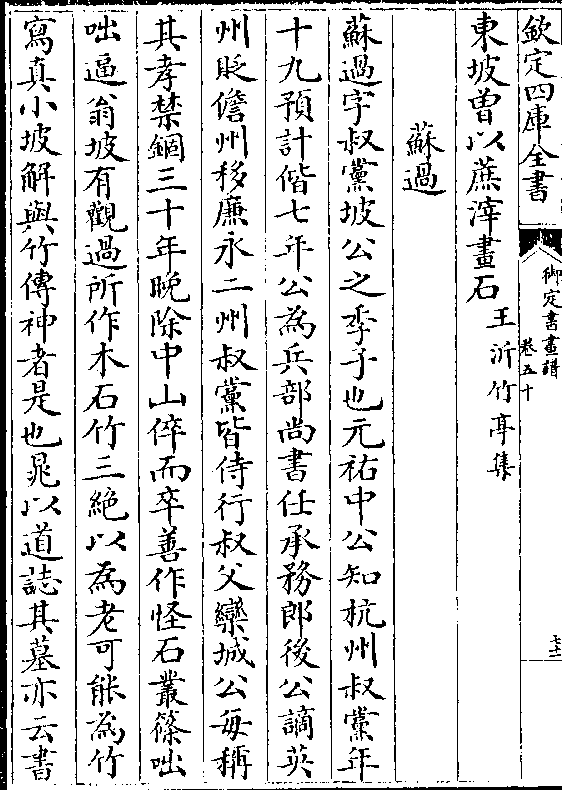 欽定四庫全書
御定書畫譜
卷五十
七十二
東坡曾以蔗滓畫石王沂竹亭集
蘇過
蘇過字叔黨坡公之季子也元祐中公知杭州叔黨年
十九預計偕七年公為兵部尚書任承務郎後公謫英
州貶儋州移廉永二州叔黨皆侍行叔父欒城公每稱
其孝禁錮三十年晚除中山倅而卒善作怪石叢篠咄
咄逼翁坡有觀過所作木石竹三絶以為老可能為竹
寫真小坡解與竹傳神者是也晁以道誌其墓亦云書